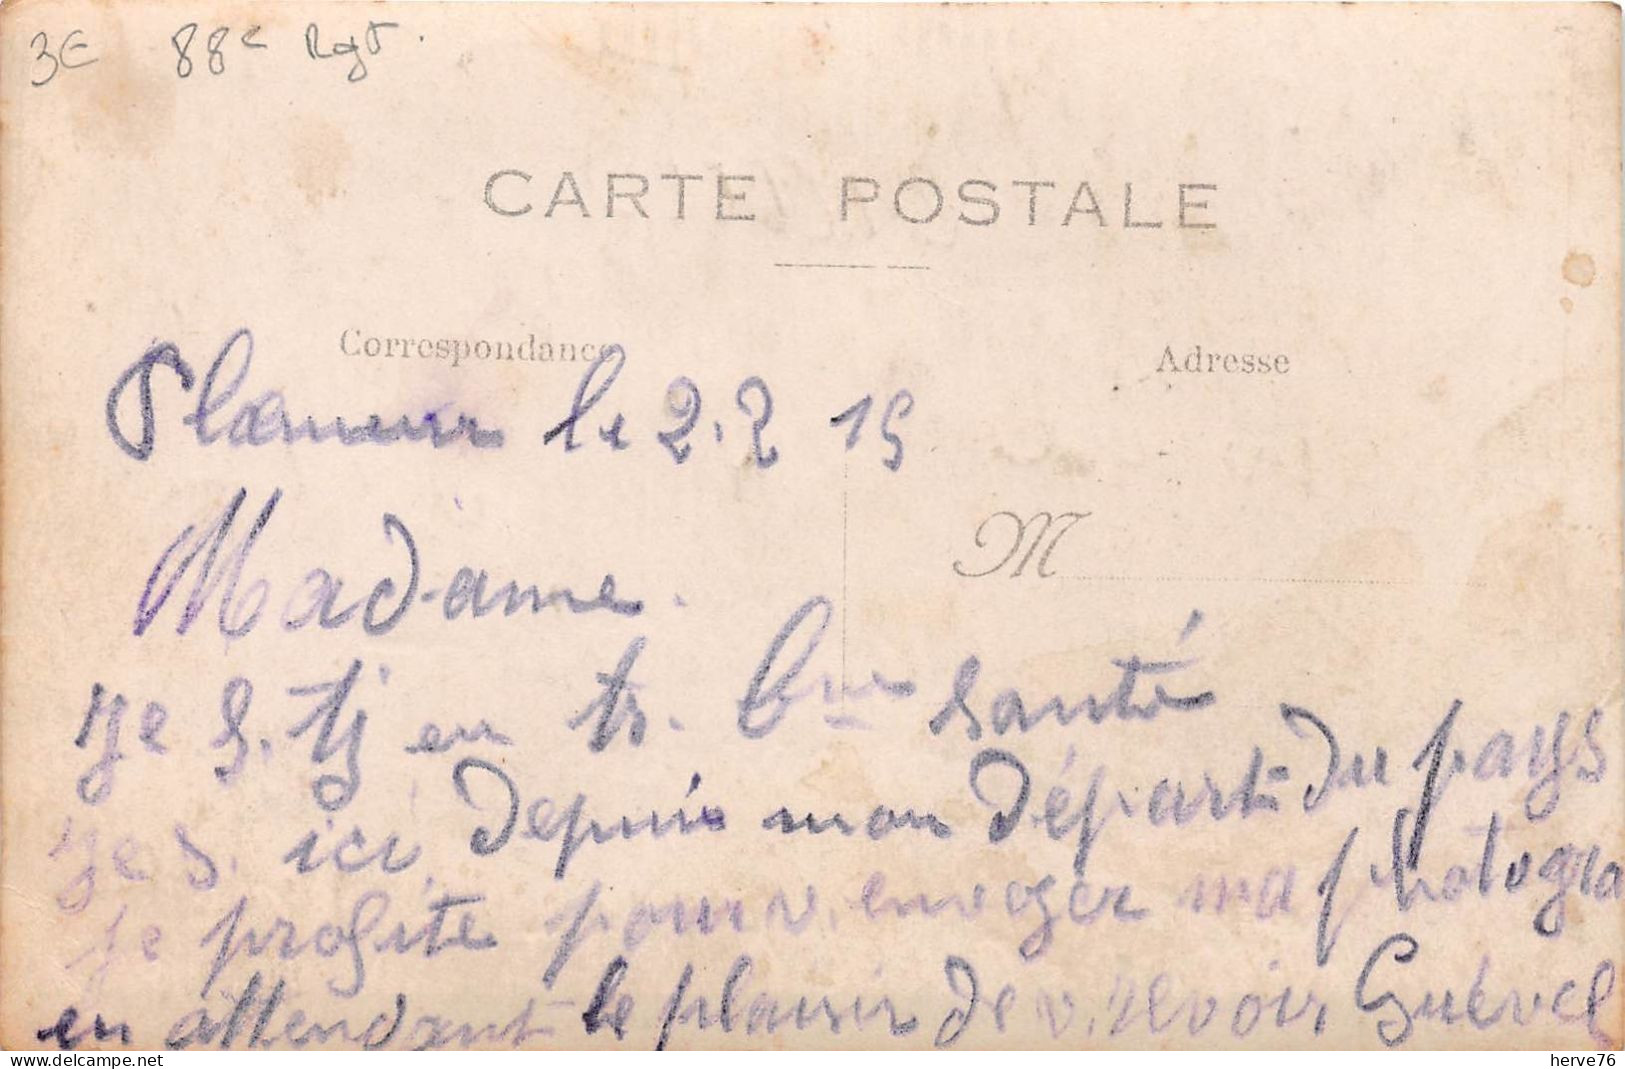 3E 88e Rgt.
CARTE POSTALE
Correspondance
Adresse
Plœmeur le 2.2 15
M
Madame.
Je s. tj en tr. bne santé
Je s. ici depuis mon départ du pays
je profite pour v. envoyer ma photogra
en attendant le plaisir de v. revoir, Guével
delcampe.net
herve76